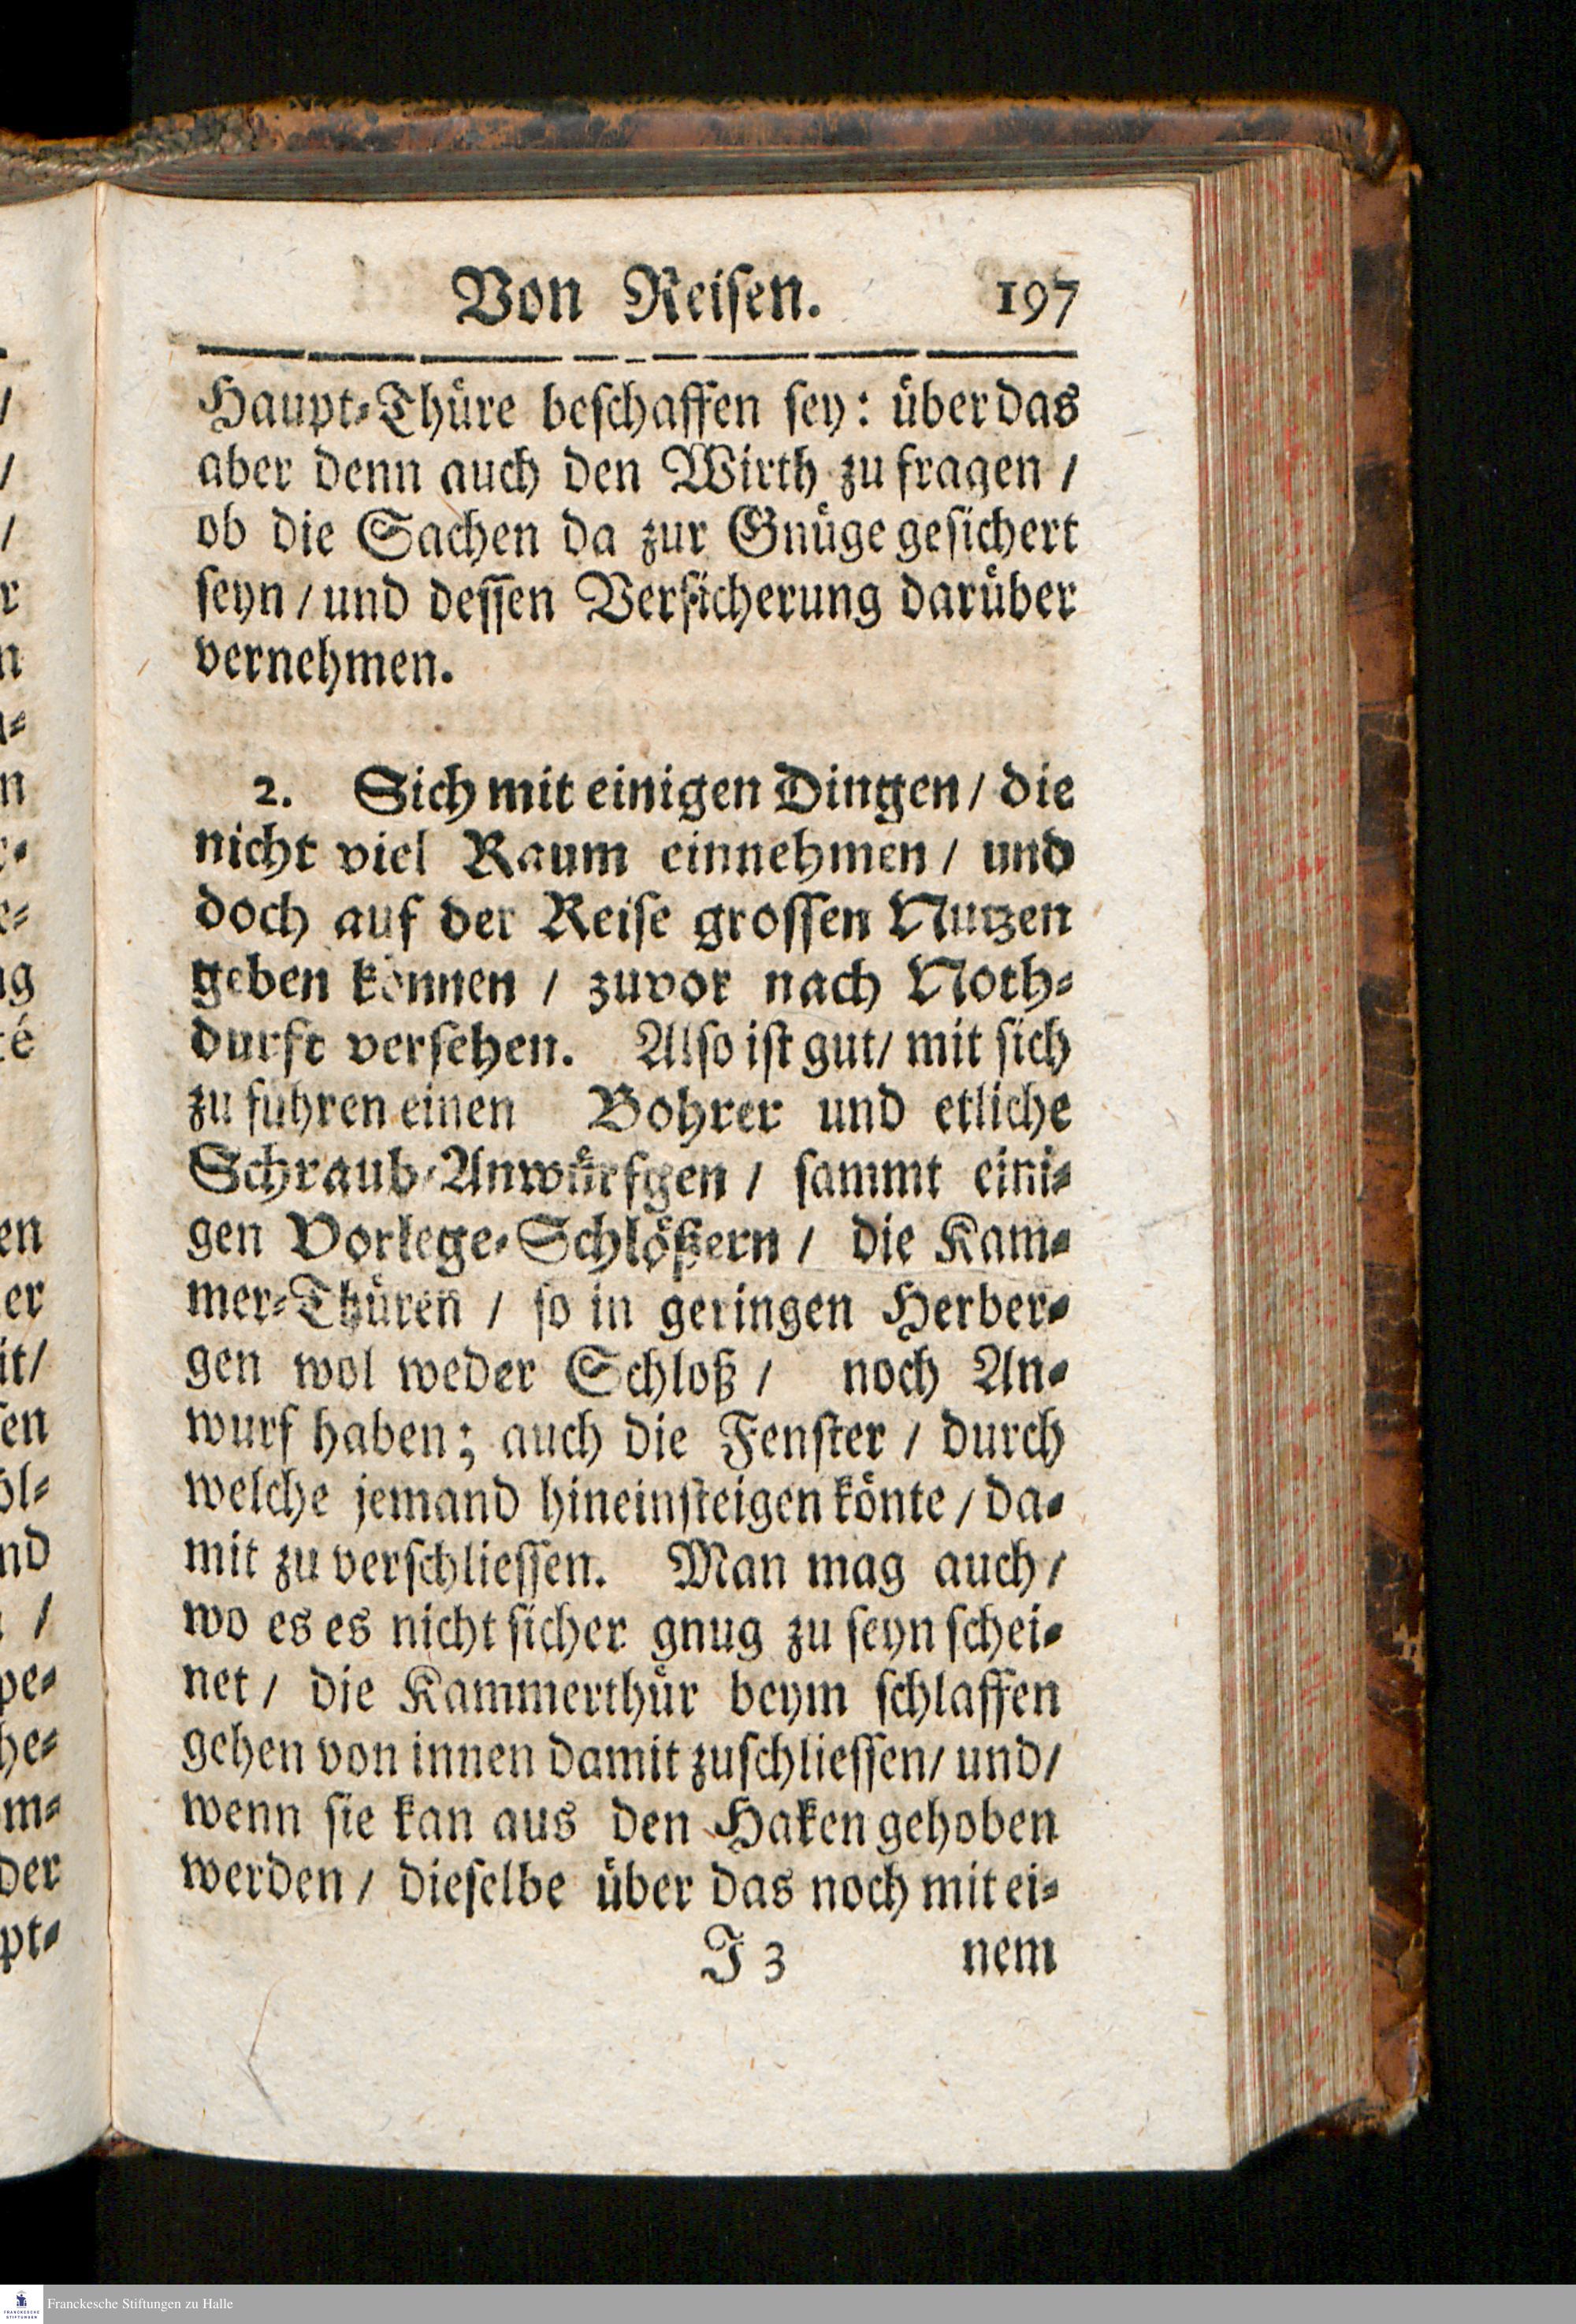 Von Reisen. 197
Haupt-Thüre beschaffen sey: überdas
aber denn auch den Wirth zu fragen /
ob die Sachen da zur Gnüge gesichert
seyn / und dessen Versicherung darüber
vernehmen.
2. Sich mit einigen Dingen / die
nicht viel Raum einnehmen / und
doch auf der Reise grossen Nutzen
geben können / zuvor nach Noth-
durft versehen. Also ist gut / mit sich
zu führen einen Bohrer und etliche
Schraub-Anwürfgen / sammt eini-
gen Vorlege-Schlößern / die Kam-
mer-Thüren / so in geringen Herber-
gen wol weder Schloß / noch An-
wurf haben; auch die Fenster / durch
welche jemand hineinsteigen könte / da-
mit zu verschliessen. Man mag auch /
wo es es nicht sicher gnug zu seyn schei-
net / die Kammerthür beym schlaffen
gehen von innen damit zuschliessen / und /
wenn sie kan aus den Haken gehoben
werden / dieselbe über das noch mit ei-
J 3 nem
Franckesche Stiftungen zu Halle